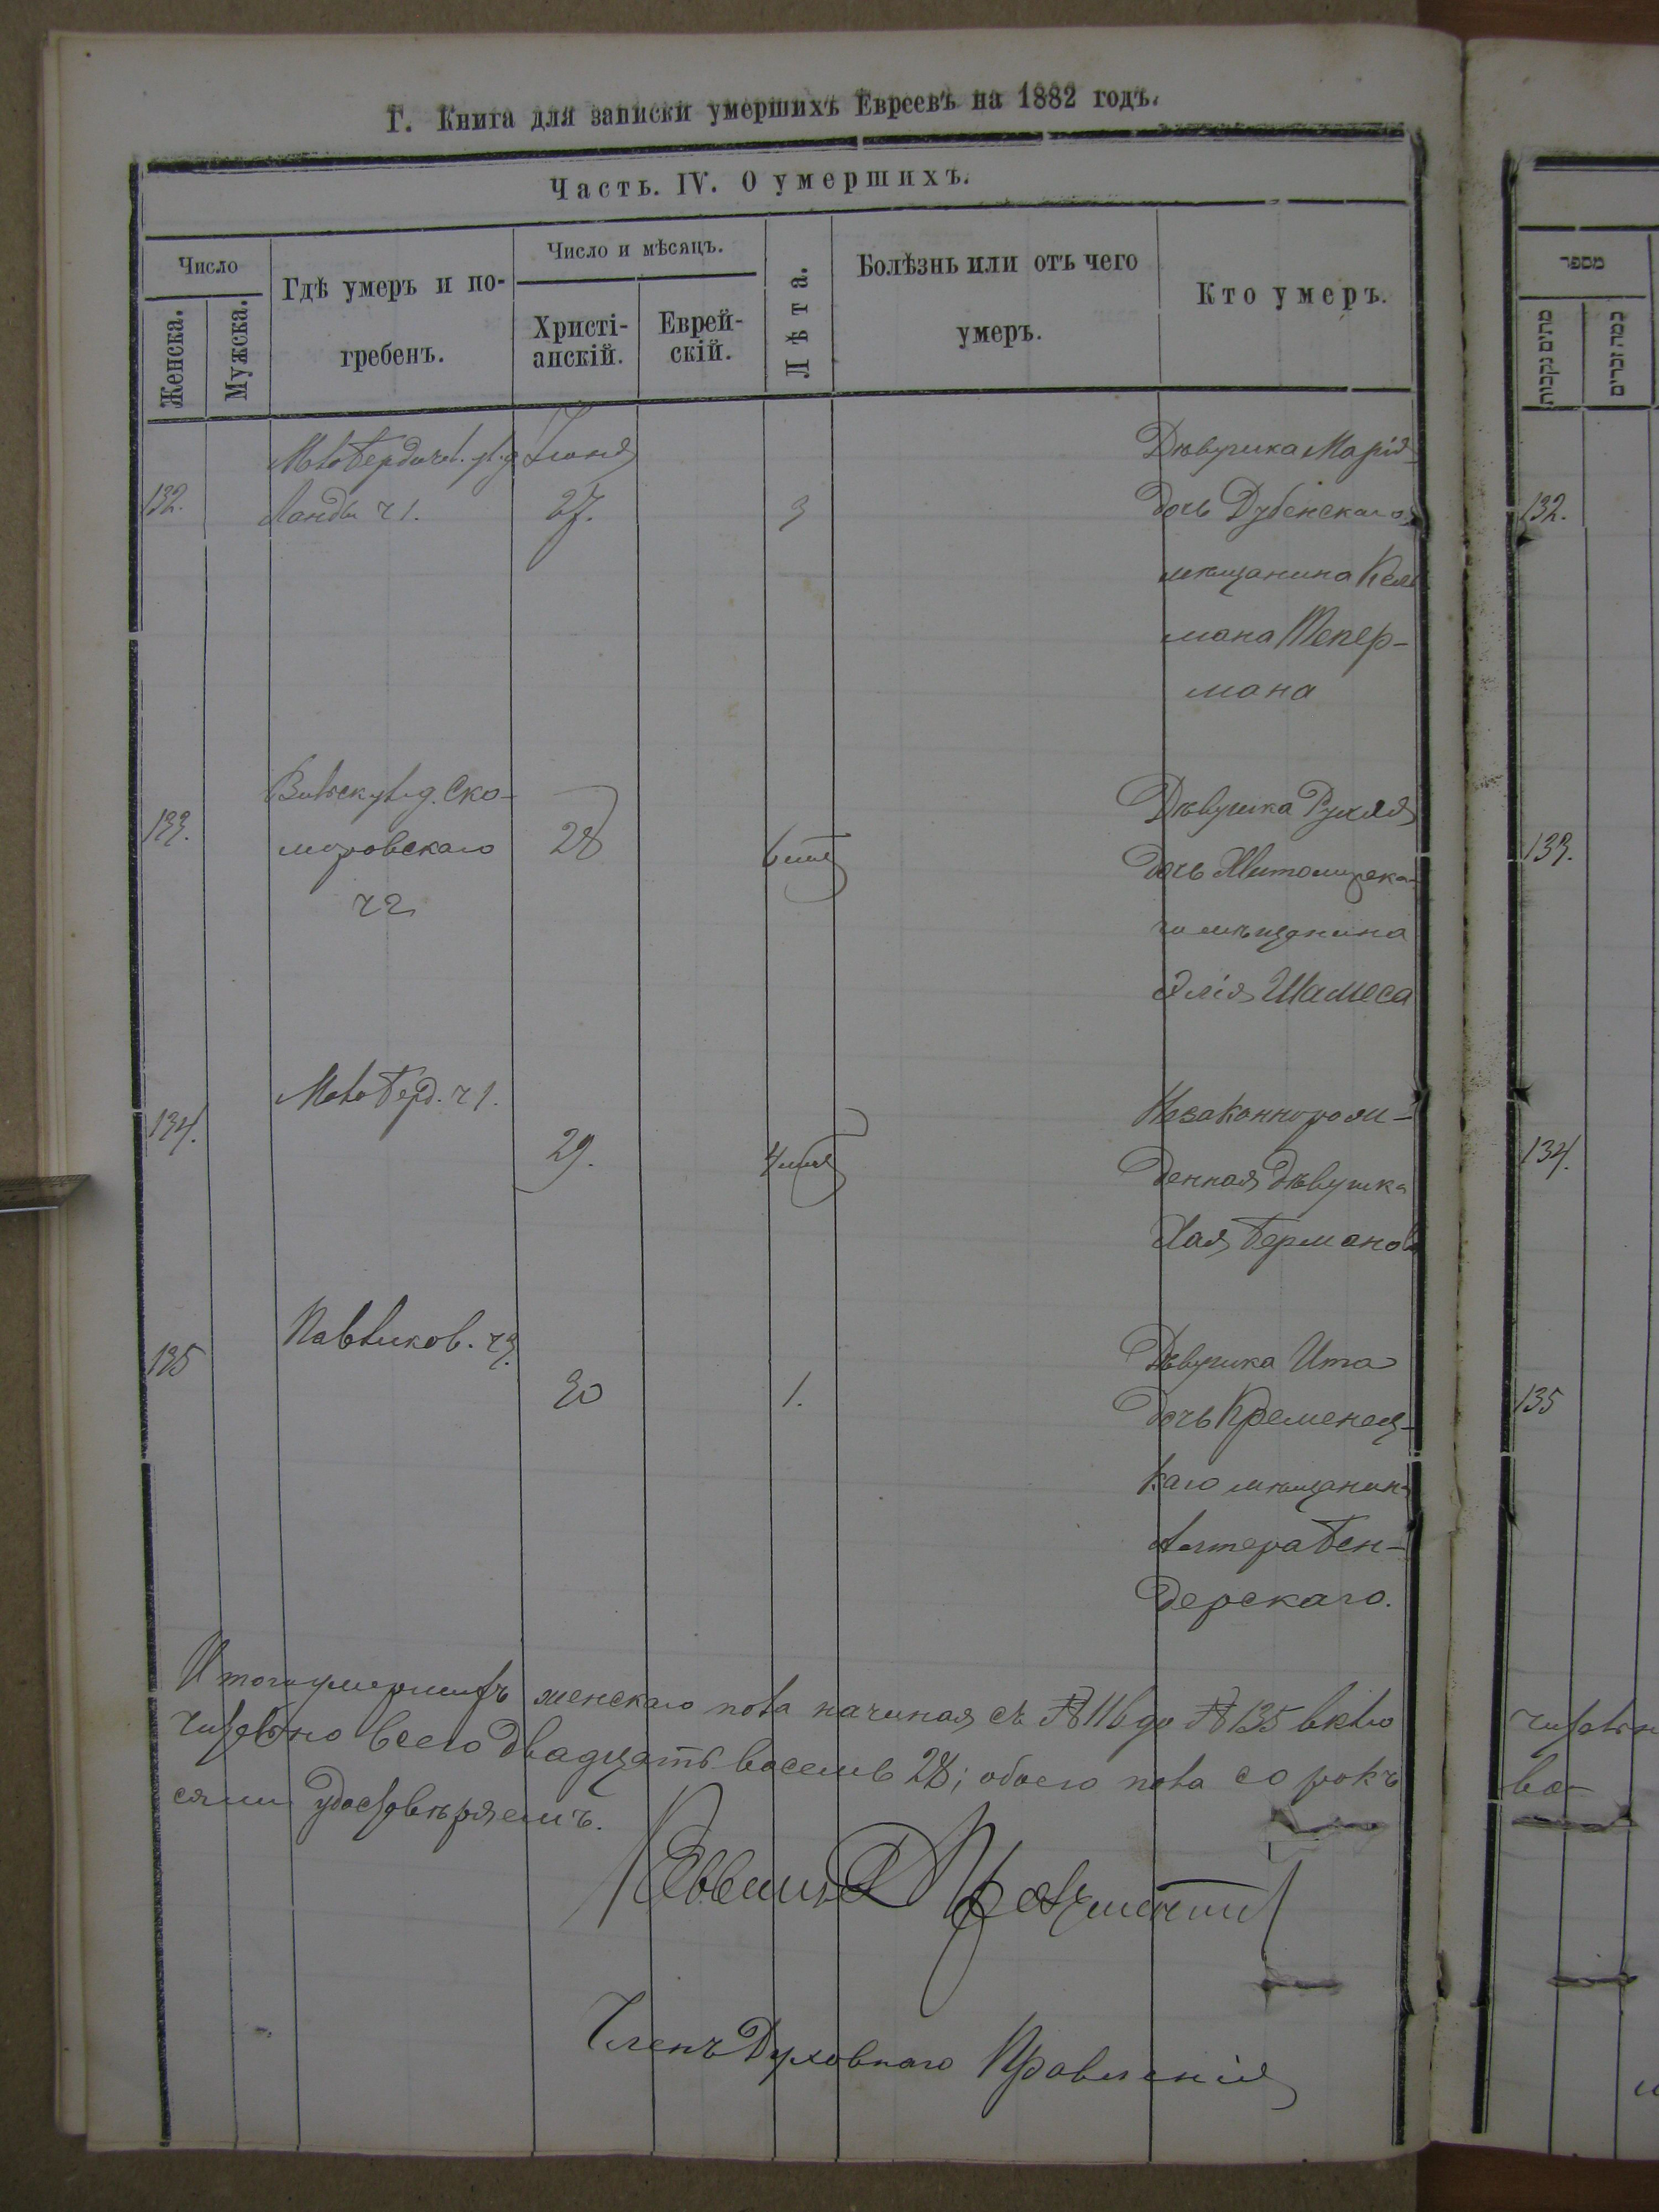 Г. Книга для записки умершихъ Евреевъ на 1882 годъ.
Часть. IV. О умершихъ.
Число
Женска.
Мужска.
Гдѣ умеръ и по-
гребенъ.
Число и мѣсяцъ.
Христі-
анскій.
Еврей-
скій.
Лѣта.
Болѣзнь или отъ чего
умеръ.
Кто умеръ.
132.
Мало Бердичев. ул. д.
Ланды ч 1.
Іюня
27.
3
Дѣвушка Марія
дочь Дубенскаго
мѣщанина Кель
мана Тепер-
мана
133.
ул. д. Ско-
моровскаго
ч 2
28
6
Дѣвушка Рухля
дочь Житомирска-
го мѣщанина
Элія Шамеса
134.
Мало Берд. ч 1.
29.
4
Незаконнорож-
денная дѣвушка
Хая Берманова
135
ч 3.
30
1.
Дѣвушка Ита
дочь Кременец-
каго мѣщанина
Алтера Бен-
дерскаго.
Итого умершихъ женскаго пола начиная съ № 116 до № 135 вклю
чительно всего двадцать восемь 28; обоего пола сорокъ
симъ удостовѣряемъ.
Членъ Духовнаго Правленія
מספר
מתים נקבות
כמה זכרים
132.
133.
134.
135